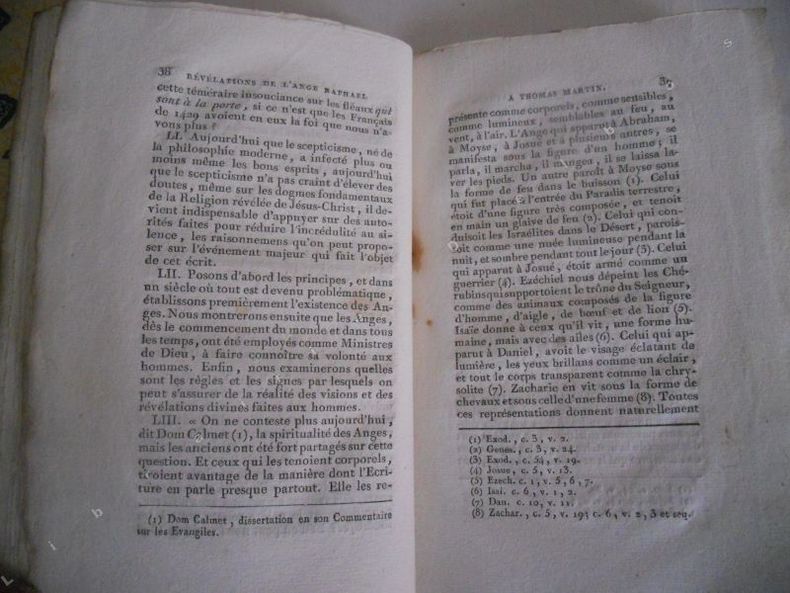 38 RÉVÉLATIONS DE L'ANGE RAPHAEL
cette téméraire insouciance sur les fléaux qui
sont à la porte, si ce n'est que les Français
de 1429 avoient en eux la foi que nous n'a-
vons plus ?
LI. Aujourd'hui que le scepticisme, né de
la philosophie moderne, a infecté plus ou
moins même les bons esprits, aujourd'hui
que le scepticisme n'a pas craint d'élever des
doutes, même sur les dogmes fondamentaux
de la Religion révélée de Jésus-Christ, il de-
vient indispensable d'appuyer sur des auto-
rités faites pour réduire l'incrédulité au si-
lence, les raisonnemens qu'on peut propo-
ser sur l'événement majeur qui fait l'objet
de cet écrit.
LII. Posons d'abord les principes, et dans
un siècle où tout est devenu problématique,
établissons premièrement l'existence des An-
ges. Nous montrerons ensuite que les Anges,
dès le commencement du monde et dans tous
les temps, ont été employés comme Ministres
de Dieu, à faire connoître sa volonté aux
hommes. Enfin, nous examinerons quelles
sont les règles et les signes par lesquels on
peut s'assurer de la réalité des visions et des
révélations divines faites aux hommes.
LIII. « On ne conteste plus aujourd'hui,
dit Dom Calmet (1), la spiritualité des Anges,
mais les anciens ont été fort partagés sur cette
question. Et ceux qui les tenoient corporels,
tiroient avantage de la manière dont l'Ecri-
ture en parle presque partout. Elle les re-
(1) Dom Calmet, dissertation en son Commentaire
sur les Evangiles.
A THOMAS MARTIN.
présente comme corporels, comme sensibles,
comme lumineux, semblables au feu, au
vent, à l'air. L'Ange qui apparut à Abraham,
à Moyse, à Josué et à plusieurs autres, se
manifesta sous la figure d'un homme ; il
parla, il marcha, il mangea, il se laissa la-
ver les pieds. Un autre paroît à Moyse sous
la forme de feu dans le buisson (1). Celui
qui fut placé à l'entrée du Paradis terrestre,
étoit d'une figure très composée, et tenoit
en main un glaive de feu (2). Celui qui con-
duisoit les Israélites dans le Désert, parois-
soit comme une nuée lumineuse pendant la
nuit, et sombre pendant tout le jour (3). Celui
qui apparut à Josué, étoit armé comme un
guerrier (4). Ezéchiel nous dépeint les Ché-
rubins qui supportoient le trône du Seigneur,
comme des animaux composés de la figure
d'homme, d'aigle, de bœuf et de lion (5).
Isaïe donne à ceux qu'il vit, une forme hu-
maine, mais avec des ailes (6). Celui qui ap-
parut à Daniel, avoit le visage éclatant de
lumière, les yeux brillans comme un éclair,
et tout le corps transparent comme la chry-
solite (7). Zacharie en vit sous la forme de
chevaux et sous celle d'une femme (8). Toutes
ces représentations donnent naturellement
(1) Exod., c. 3, v. 2.
(2) Genes., c. 3, v. 24.
(3) Exod., c. 54, v. 19.
(4) Josue, c. 5, v. 13.
(5) Ezech. c. 1, v. 5, 6, 7.
(6) Isai. c. 6, v. 1, 2.
(7) Dan. c. 10, v. 11.
(8) Zachar., c. 5, v. 19; c. 6, v. 2, 3 et seq.